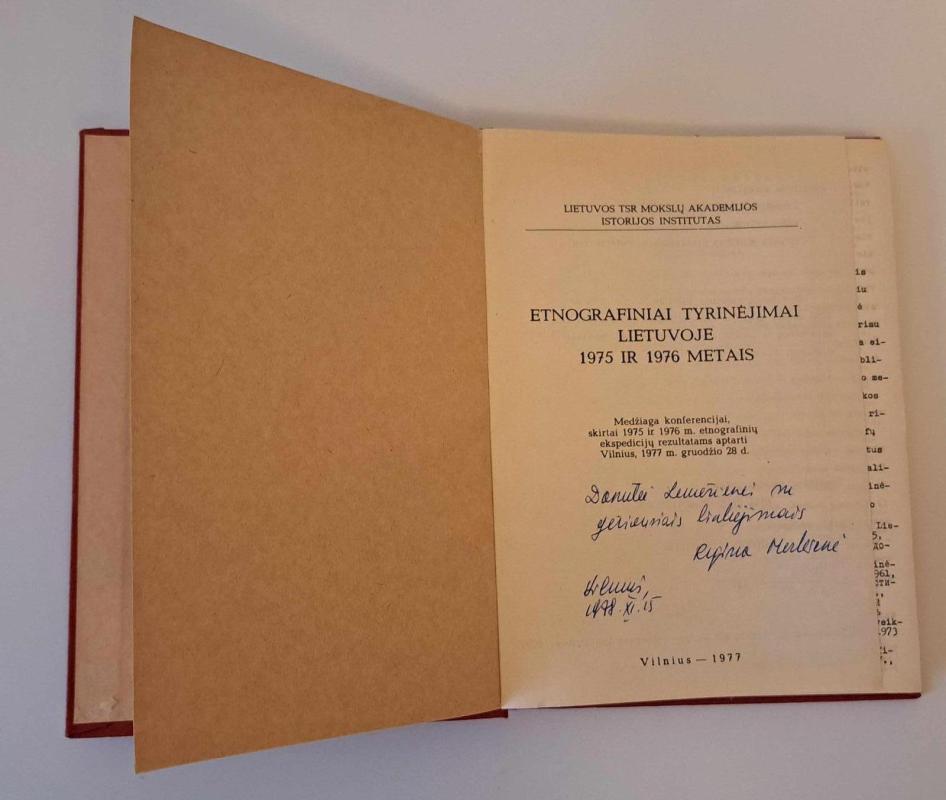 LIETUVOS TSR MOKSLŲ AKADEMIJOS
ISTORIJOS INSTITUTAS
ETNOGRAFINIAI TYRINĖJIMAI
LIETUVOJE
1975 IR 1976 METAIS
Medžiaga konferencijai,
skirtai 1975 ir 1976 m. etnografinių
ekspedicijų rezultatams aptarti
Vilnius, 1977 m. gruodžio 28 d.
Danutei su
geriausiais linkėjimais
Regina Merkienė
Vilnius,
1978.XI.15
Vilnius — 1977
is
iu
ė
riau
a ei-
bli-
o me-
kos
ri-
fų
tus
ali-
inė-
o
Lie-
5,
ДО-
inė-
961,
СТИ-
veik-
1973